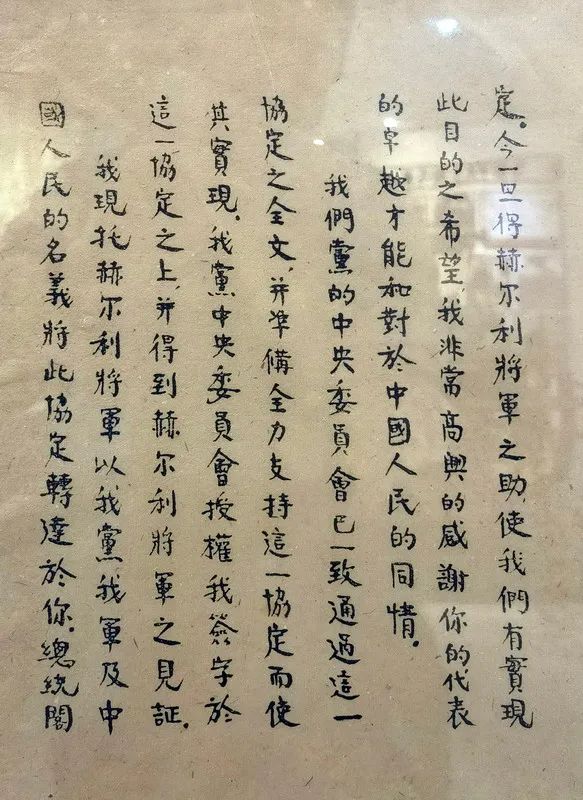 定。今一旦得赫尔利將軍之助，使我們有實現
此目的之希望，我非常高興的感謝你的代表
的卓越才能和對於中國人民的同情。
我們黨的中央委員會已一致通過這一
協定之全文，并準備全力支持這一協定而使
其實現。我黨中央委員會授權我簽字於
這一協定之上，并得到赫尔利將軍之見証。
我現托赫尔利將軍以我黨我軍及中
國人民的名義將此協定轉達於你。總統閣